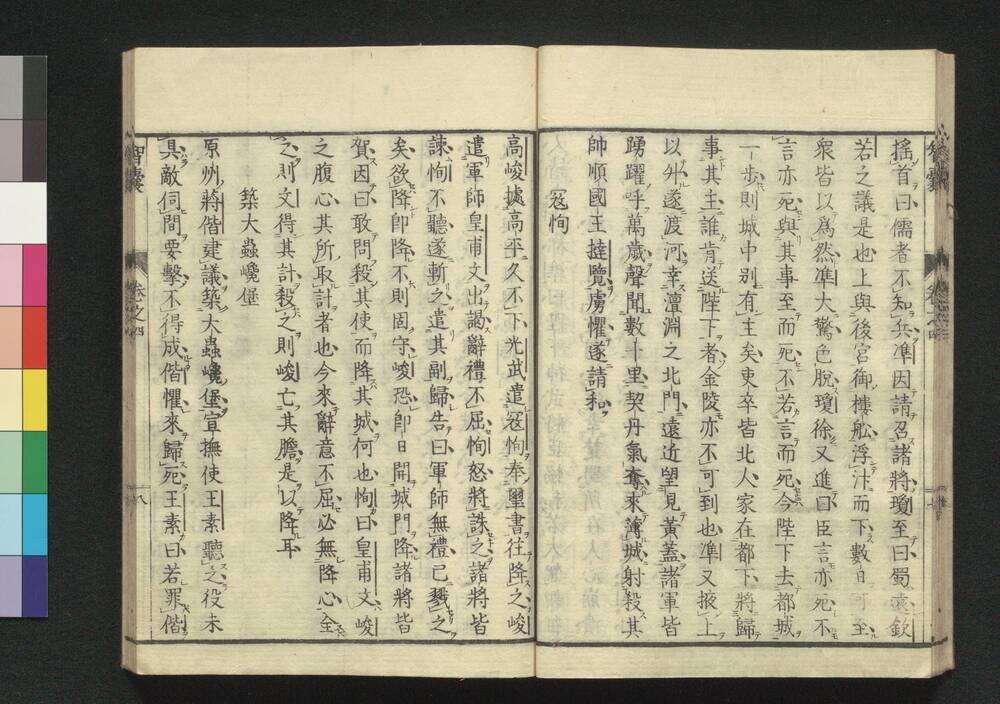 搖首曰儒者不知兵準因請召諸將瓊至曰蜀遠欽
若之議是也上與後宮御樓舩浮汴而下數日可至
衆皆以爲然準大驚色脫瓊徐又進曰臣言亦死不
言亦死與其事至而死不若言而死今陛下去都城
一步則城中別有主矣吏卒皆北人家在都下將歸
事其主誰肯送陛下者金陵亦不可到也準又掖上
以外遂渡河幸澶淵之北門遠近望見黃蓋諸軍皆
踴躍呼萬歲聲聞數十里契丹氣奪來薄城射殺其
帥順國王撻覽虜懼遂請和
寇恂
高峻據高平久不下光武遣寇恂奉璽書往降之峻
遣軍師皇甫文出謁辭禮不屈恂怒將誅之諸將皆
諫恂不聽遂斬之遣其副歸告曰軍師無禮已戮之
矣欲降即降不則固守峻恐即日開城門降諸將皆
賀因曰敢問殺其使而降其城何也恂曰皇甫文峻
之腹心其所取計者也今來辭意不屈必無降心全
之則文得其計殺之則峻亡其膽是以降耳
築大蟲巉堡
原州將偕建議築大蟲巉堡宣撫使王素聽之役未
具敵伺間要擊不得成偕懼來歸死王素曰若罪偕
智囊
卷之四
八